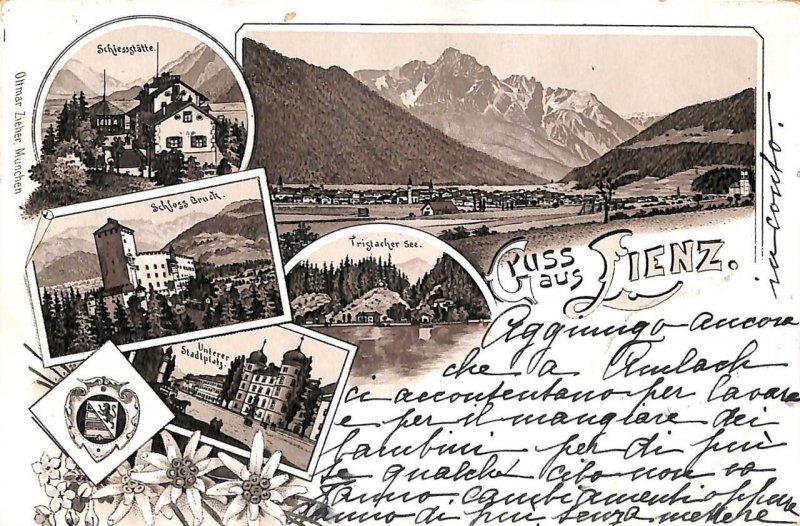 Schiessstätte.
Ottmar Zieher, München
Schloss Bruck.
Tristacher See.
Gruss aus Lienz.
Unterer Stadtplatz.
in conto.
Aggiungo ancora
che a Amlach
ci accontentano per lavare
e per il mangiare dei
bambini per di più
se qualche cibo non va
fanno cambiamenti oppure
danno di più senza mettere